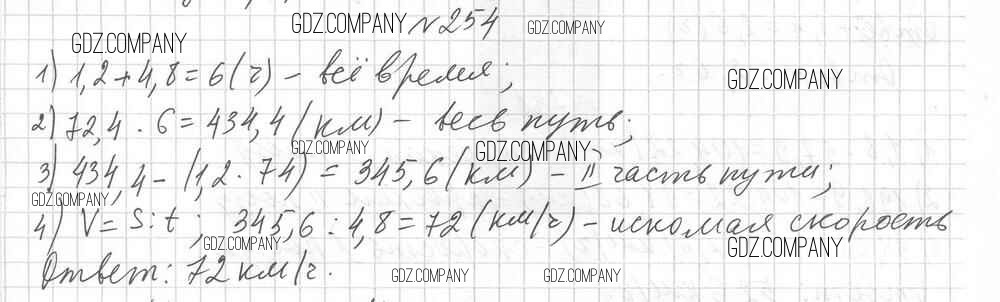 №254
1) 1,2+4,8=6(ч) – всё время;
2) 72,4 · 6 = 434,4 (км) – весь путь;
3) 434,4 – (1,2 · 74) = 345,6 (км) – II часть пути;
4) V = S : t ; 345,6 : 4,8 = 72 (км/ч) – искомая скорость
Ответ: 72 км/ч.
GDZ.COMPANY
GDZ.COMPANY
GDZ.COMPANY
GDZ.COMPANY
GDZ.COMPANY
GDZ.COMPANY
GDZ.COMPANY
GDZ.COMPANY
GDZ.COMPANY
GDZ.COMPANY
GDZ.COMPANY